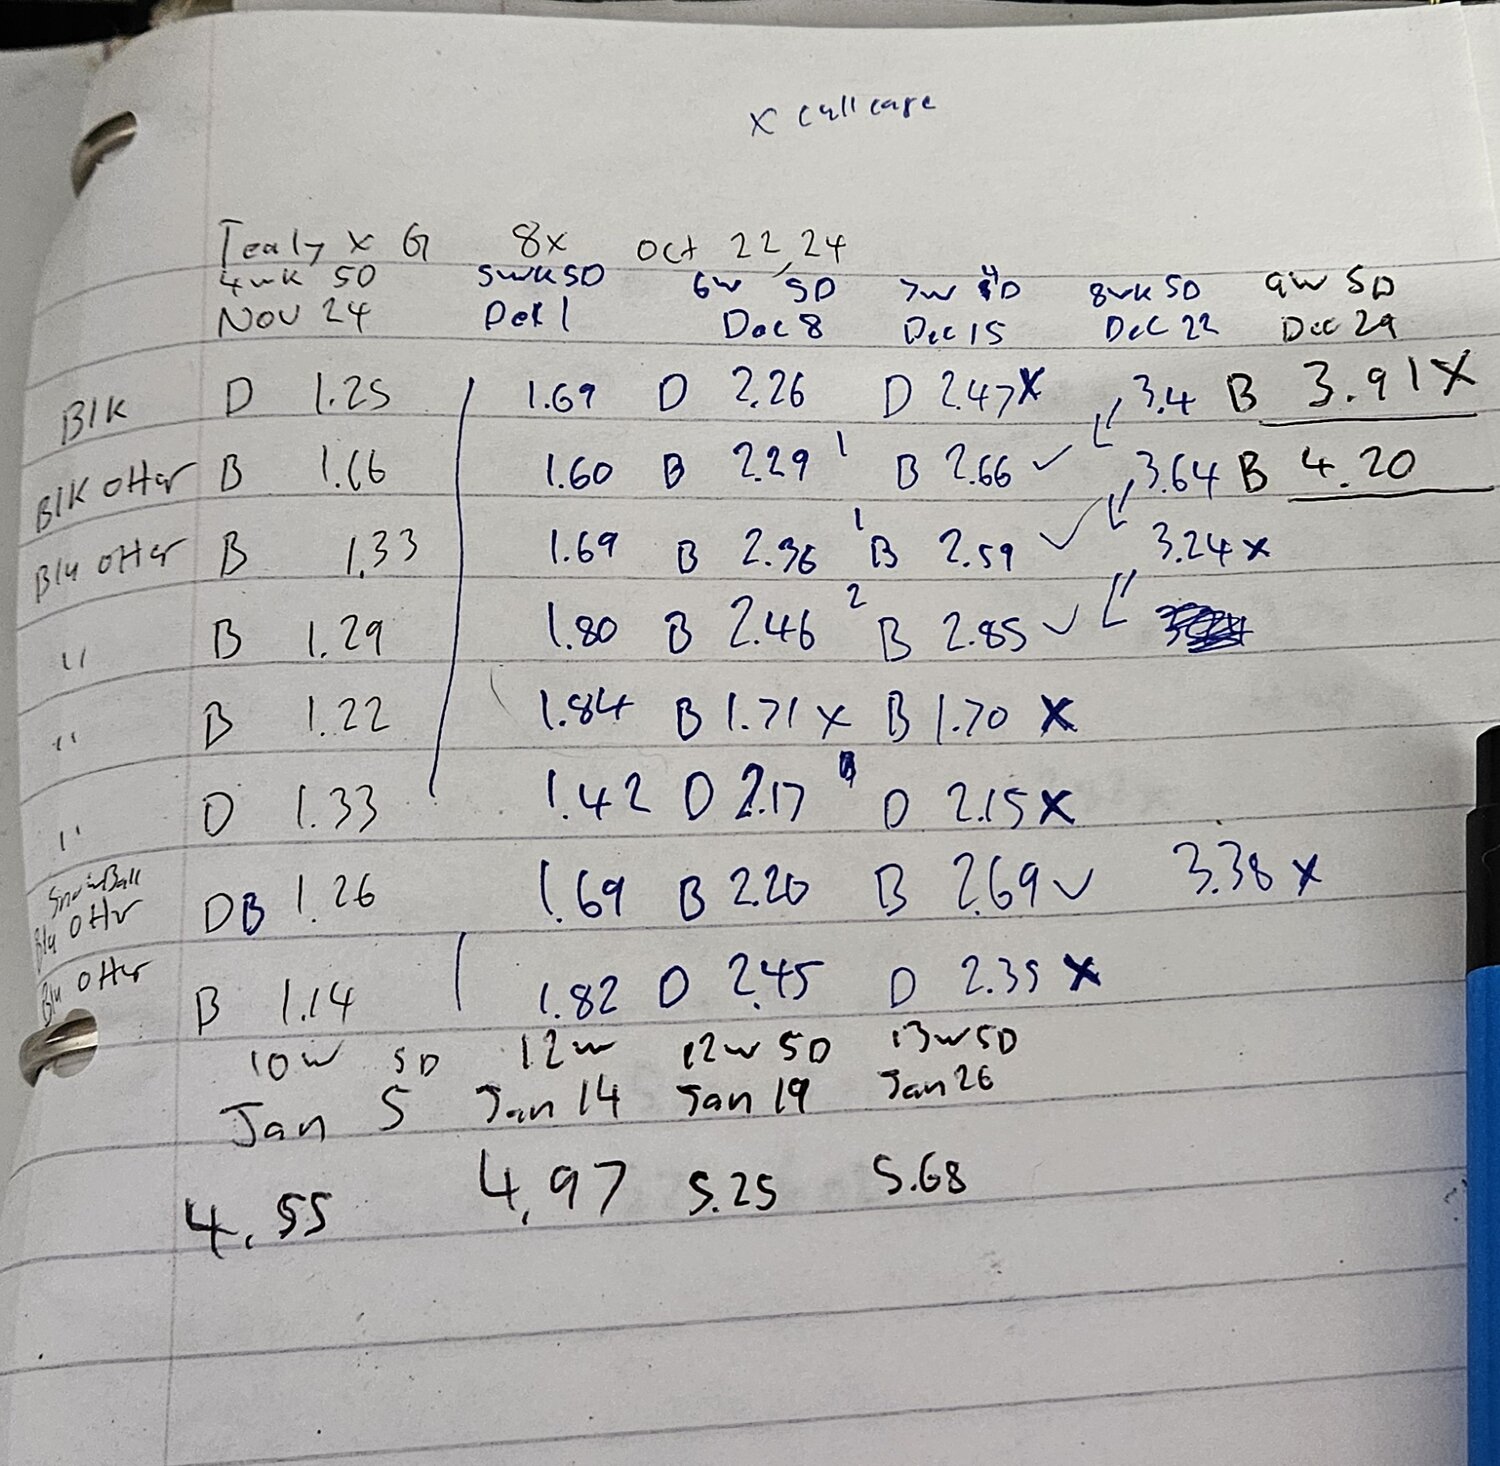 x cull cage
Tealy x G 8x Oct 22, 24
4wk 5D 5wk 5D 6w 5D 7w 4D 8wk 5D 9w 5D
Nov 24 Dec 1 Dec 8 Dec 15 Dec 22 Dec 29
Blk D 1.25 1.69 D 2.26 D 2.47 X 3.4 B 3.91 X
Blk otter B 1.16 1.60 B 2.29 1 B 2.66 ✓ 3.64 B 4.20
Blu otter B 1.33 1.69 B 2.36 1 B 2.59 ✓ 3.24 x
" B 1.29 1.80 B 2.46 2 B 2.85 ✓
" B 1.22 1.84 B 1.71 x B 1.70 X
" D 1.33 1.42 D 2.17 D 2.15 X
SnowBall Blu Otter DB 1.26 1.69 B 2.20 B 2.69 ✓ 3.38 x
Blu otter B 1.14 1.82 D 2.45 D 2.35 X
10w 5D 12w 12w 5D 13w 5D
Jan 5 Jan 14 Jan 19 Jan 26
4.55 4.97 5.25 5.68